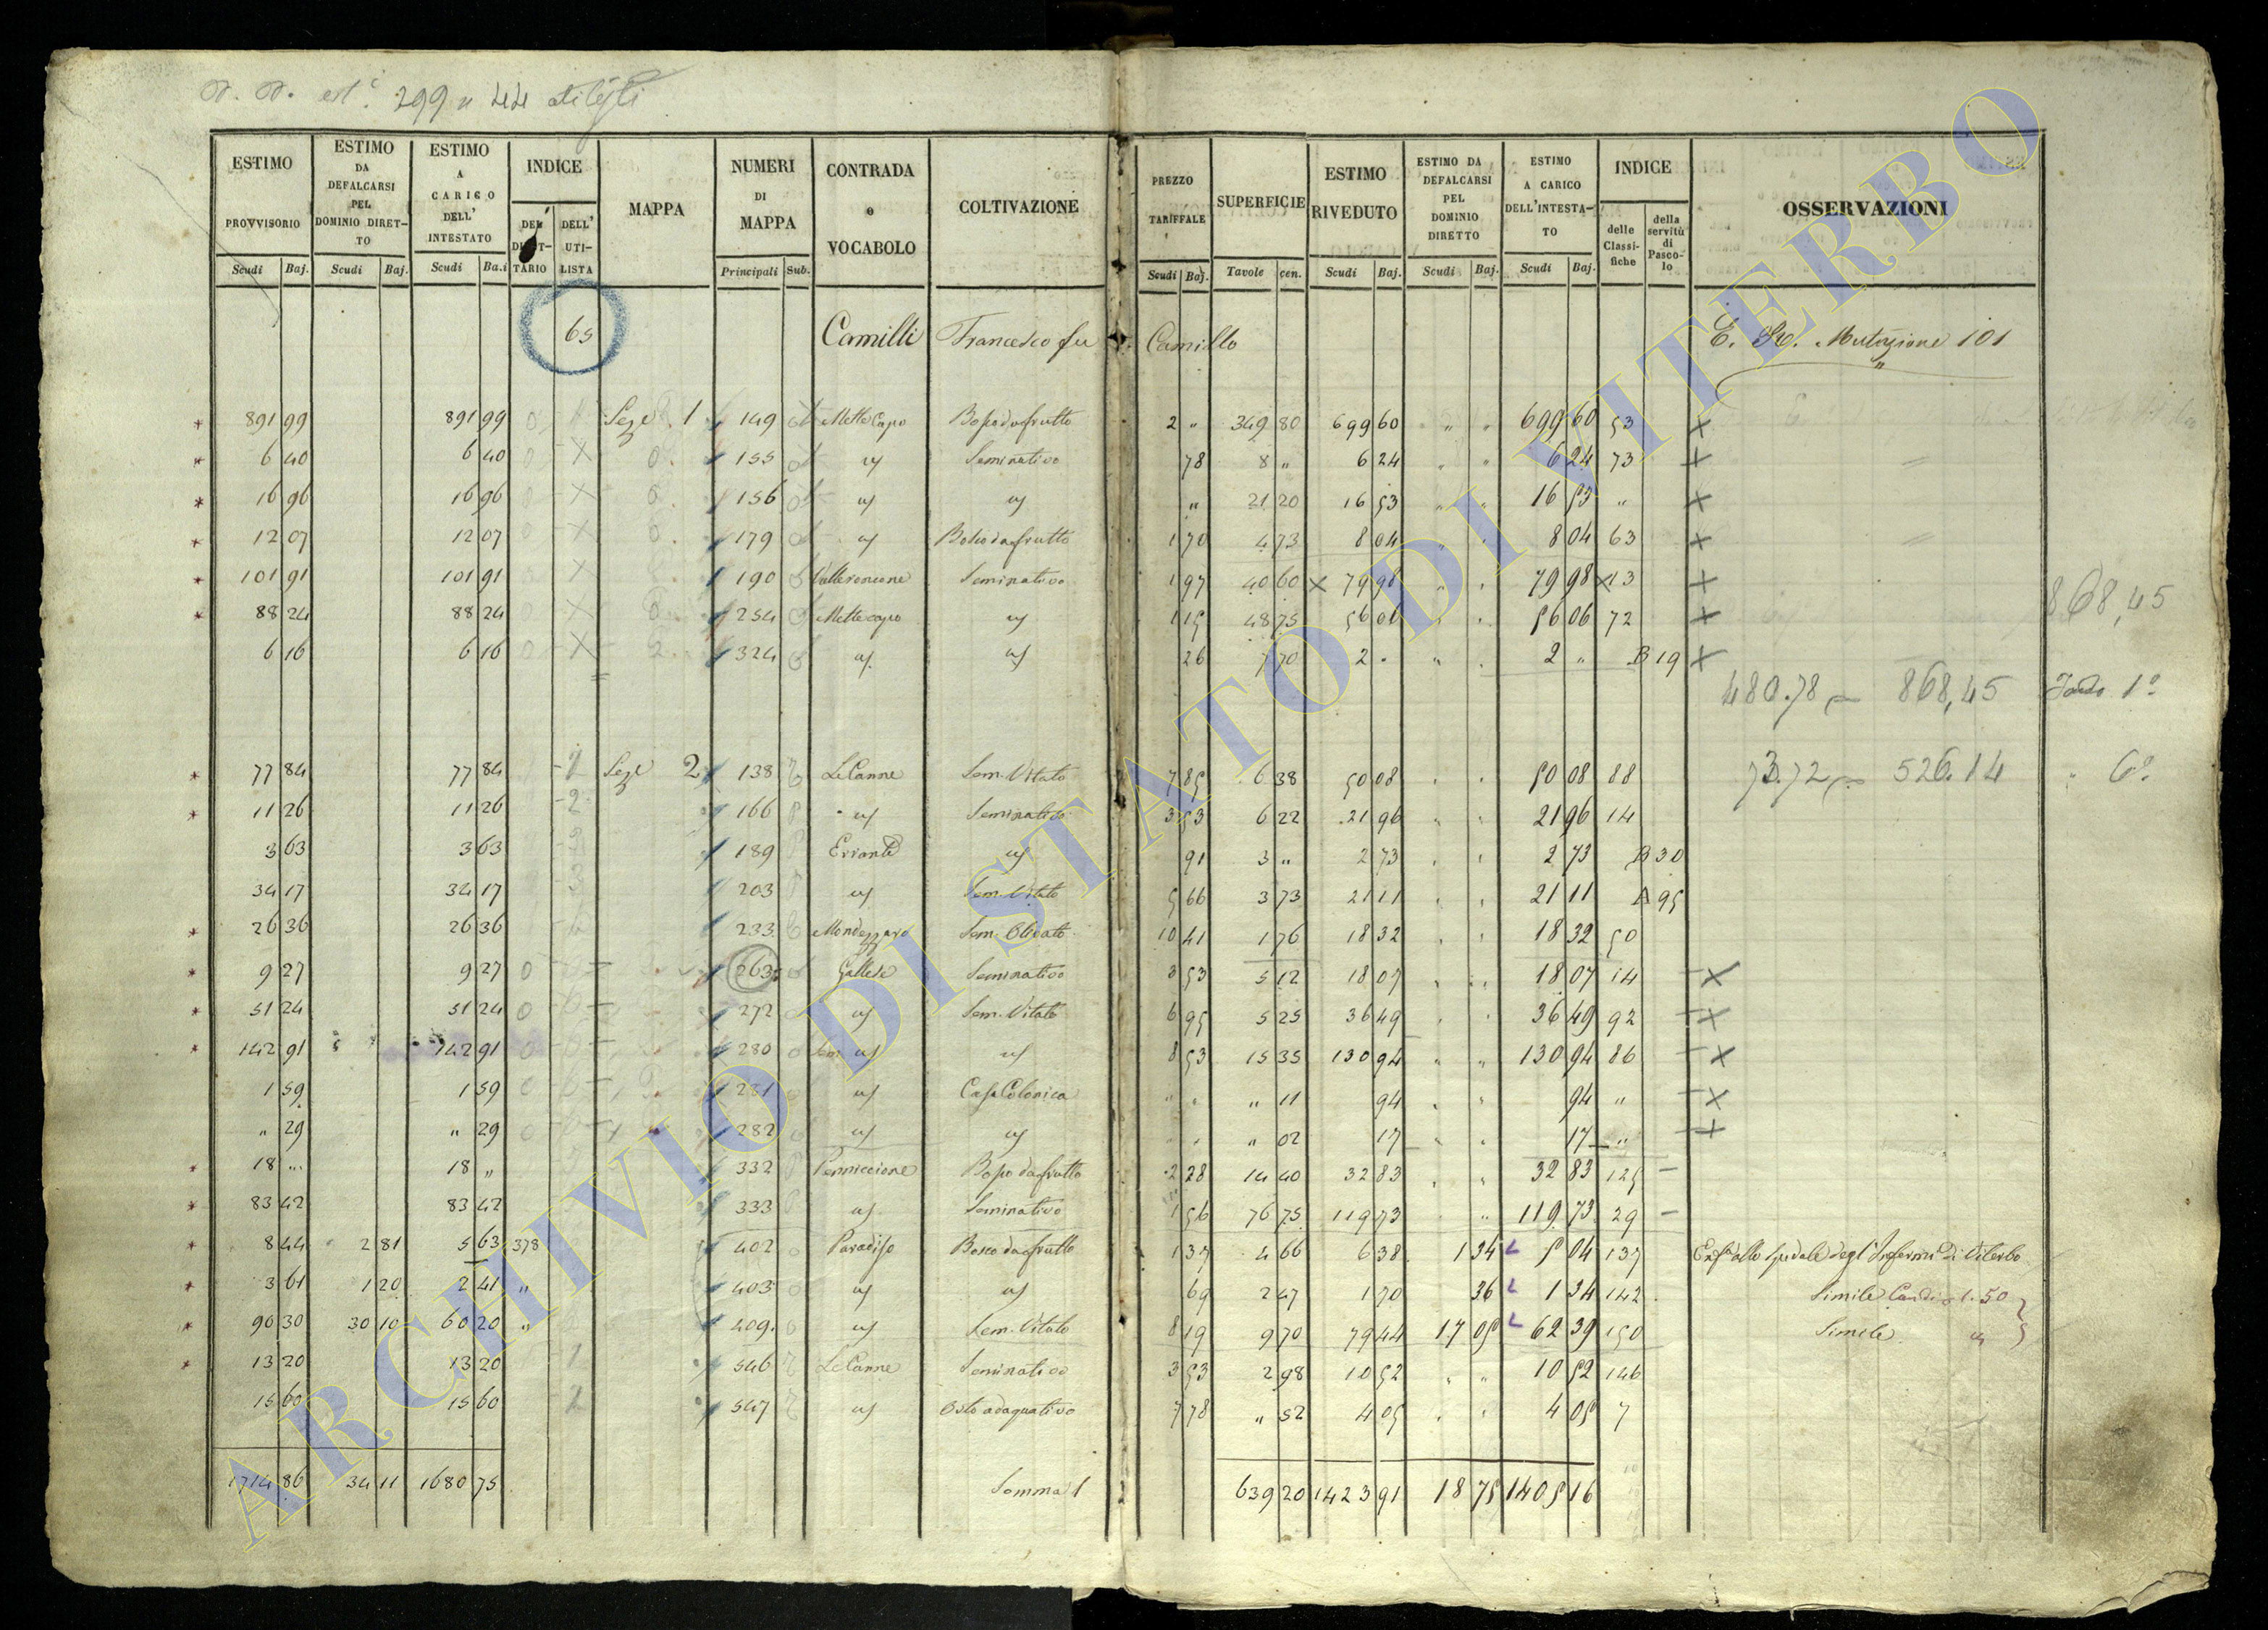 299 n 44
ESTIMO PROVVISORIO | ESTIMO DA DEFALCARSI PEL DOMINIO DIRETTO | ESTIMO A CARICO DELL' INTESTATO | INDICE | MAPPA | NUMERI DI MAPPA | CONTRADA o VOCABOLO | COLTIVAZIONE | PREZZO TARIFFALE | SUPERFICIE | ESTIMO RIVEDUTO | ESTIMO DA DEFALCARSI PEL DOMINIO DIRETTO | ESTIMO A CARICO DELL'INTESTATO | INDICE | OSSERVAZIONI
DELL' UTILISTA | delle Classifiche | della servitù di Pascolo
Scudi Baj. | Scudi Baj. | Scudi Ba.i | Principali Sub. | Scudi Baj. | Tavole cen. | Scudi Baj. | Scudi Baj. | Scudi Baj.
65 Camilli Francesco fu Camillo Mutazione 101
891 99 891 99 Seze 1 149 Mette Capo Bosco da frutto 2 " 349 80 699 60 " " 699 60 53
6 40 6 40 155 Seminativo 78 8 " 6 24 " " 6 24 73
16 96 16 96 156 " 21 20 16 53 " " 16 53 "
12 07 12 07 179 Bosco da frutto 1 70 4 73 8 04 8 04 63
101 91 101 91 190 Seminativo 1 97 40 60 79 98 79 98 13
88 24 88 24 254 Mettecapo 1 15 48 75 56 06 56 06 72
6 16 6 16 324 26 7 70 2 " 2 " B 19
868,45
480.78 868,45 1°
77 84 77 84 Seze 2 138 Le Canne Sem. Vitato 7 85 6 38 50 08 50 08 88
73.72 526.14 " 6°
11 26 11 26 166 Seminativo 3 53 6 22 21 96 21 96 14
3 63 3 63 189 91 3 " 2 73 2 73 B 30
34 17 34 17 203 Sem. Vitato 5 66 3 73 21 11 21 11 A 95
26 36 26 36 233 Sem. Olivato 10 41 1 76 18 32 18 32 50
9 27 9 27 263 Gallese Seminativo 3 53 5 12 18 07 18 07 14
51 24 51 24 272 Sem. Vitato 6 95 5 25 36 49 36 49 92
142 91 142 91 280 8 53 15 35 130 94 130 94 86
1 59 1 59 281 Casa Colonica " " " 11 94 94 "
" 29 " 29 282 " 02 17 17 "
18 " 18 " 332 Bosco da frutto 2 28 14 40 32 83 32 83 125
83 42 83 42 333 Seminativo 1 56 76 75 119 73 119 73 29
8 44 2 81 5 63 378 402 Paradiso Bosco da frutto 1 37 4 66 6 38 1 34 5 04 137 dallo Spedale degl'Infermi di Viterbo
3 61 1 20 2 41 " 403 69 2 47 1 70 36 1 34 142 Simile 1.50
90 30 30 10 60 20 " 409 Sem. Vitato 8 19 9 70 79 44 17 05 62 39 150 Simile
13 20 13 20 546 Le Canne Seminativo 3 53 2 98 10 52 " " 10 52 146
15 60 15 60 547 Orto adaquativo 7 78 " 52 4 05 4 05 7
1714 86 34 11 1680 75 Somma 639 20 1423 91 18 75 1405 16
ARCHIVIO DI STATO DI VITERBO